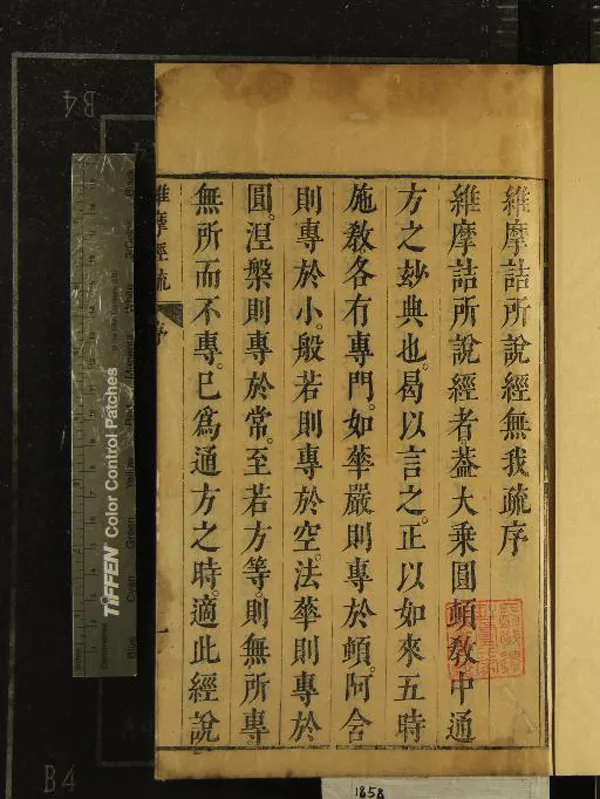 維摩詰所說經無我疏序
維摩詰所說經者葢大乗圓頓敎中通
方之玅典也。曷以言之。正以如來五時
施敎各有專門。如華嚴則專於頓。阿含
則專於小。般若則專於空。法華則專於
圓。涅槃則專於常。至若方等。則無所專
無所而不專。已爲通方之時。適此經說
維摩經疏 序 一
TIFFEN Color Control Patches
Blue Cyan Green
B4
B4
1858